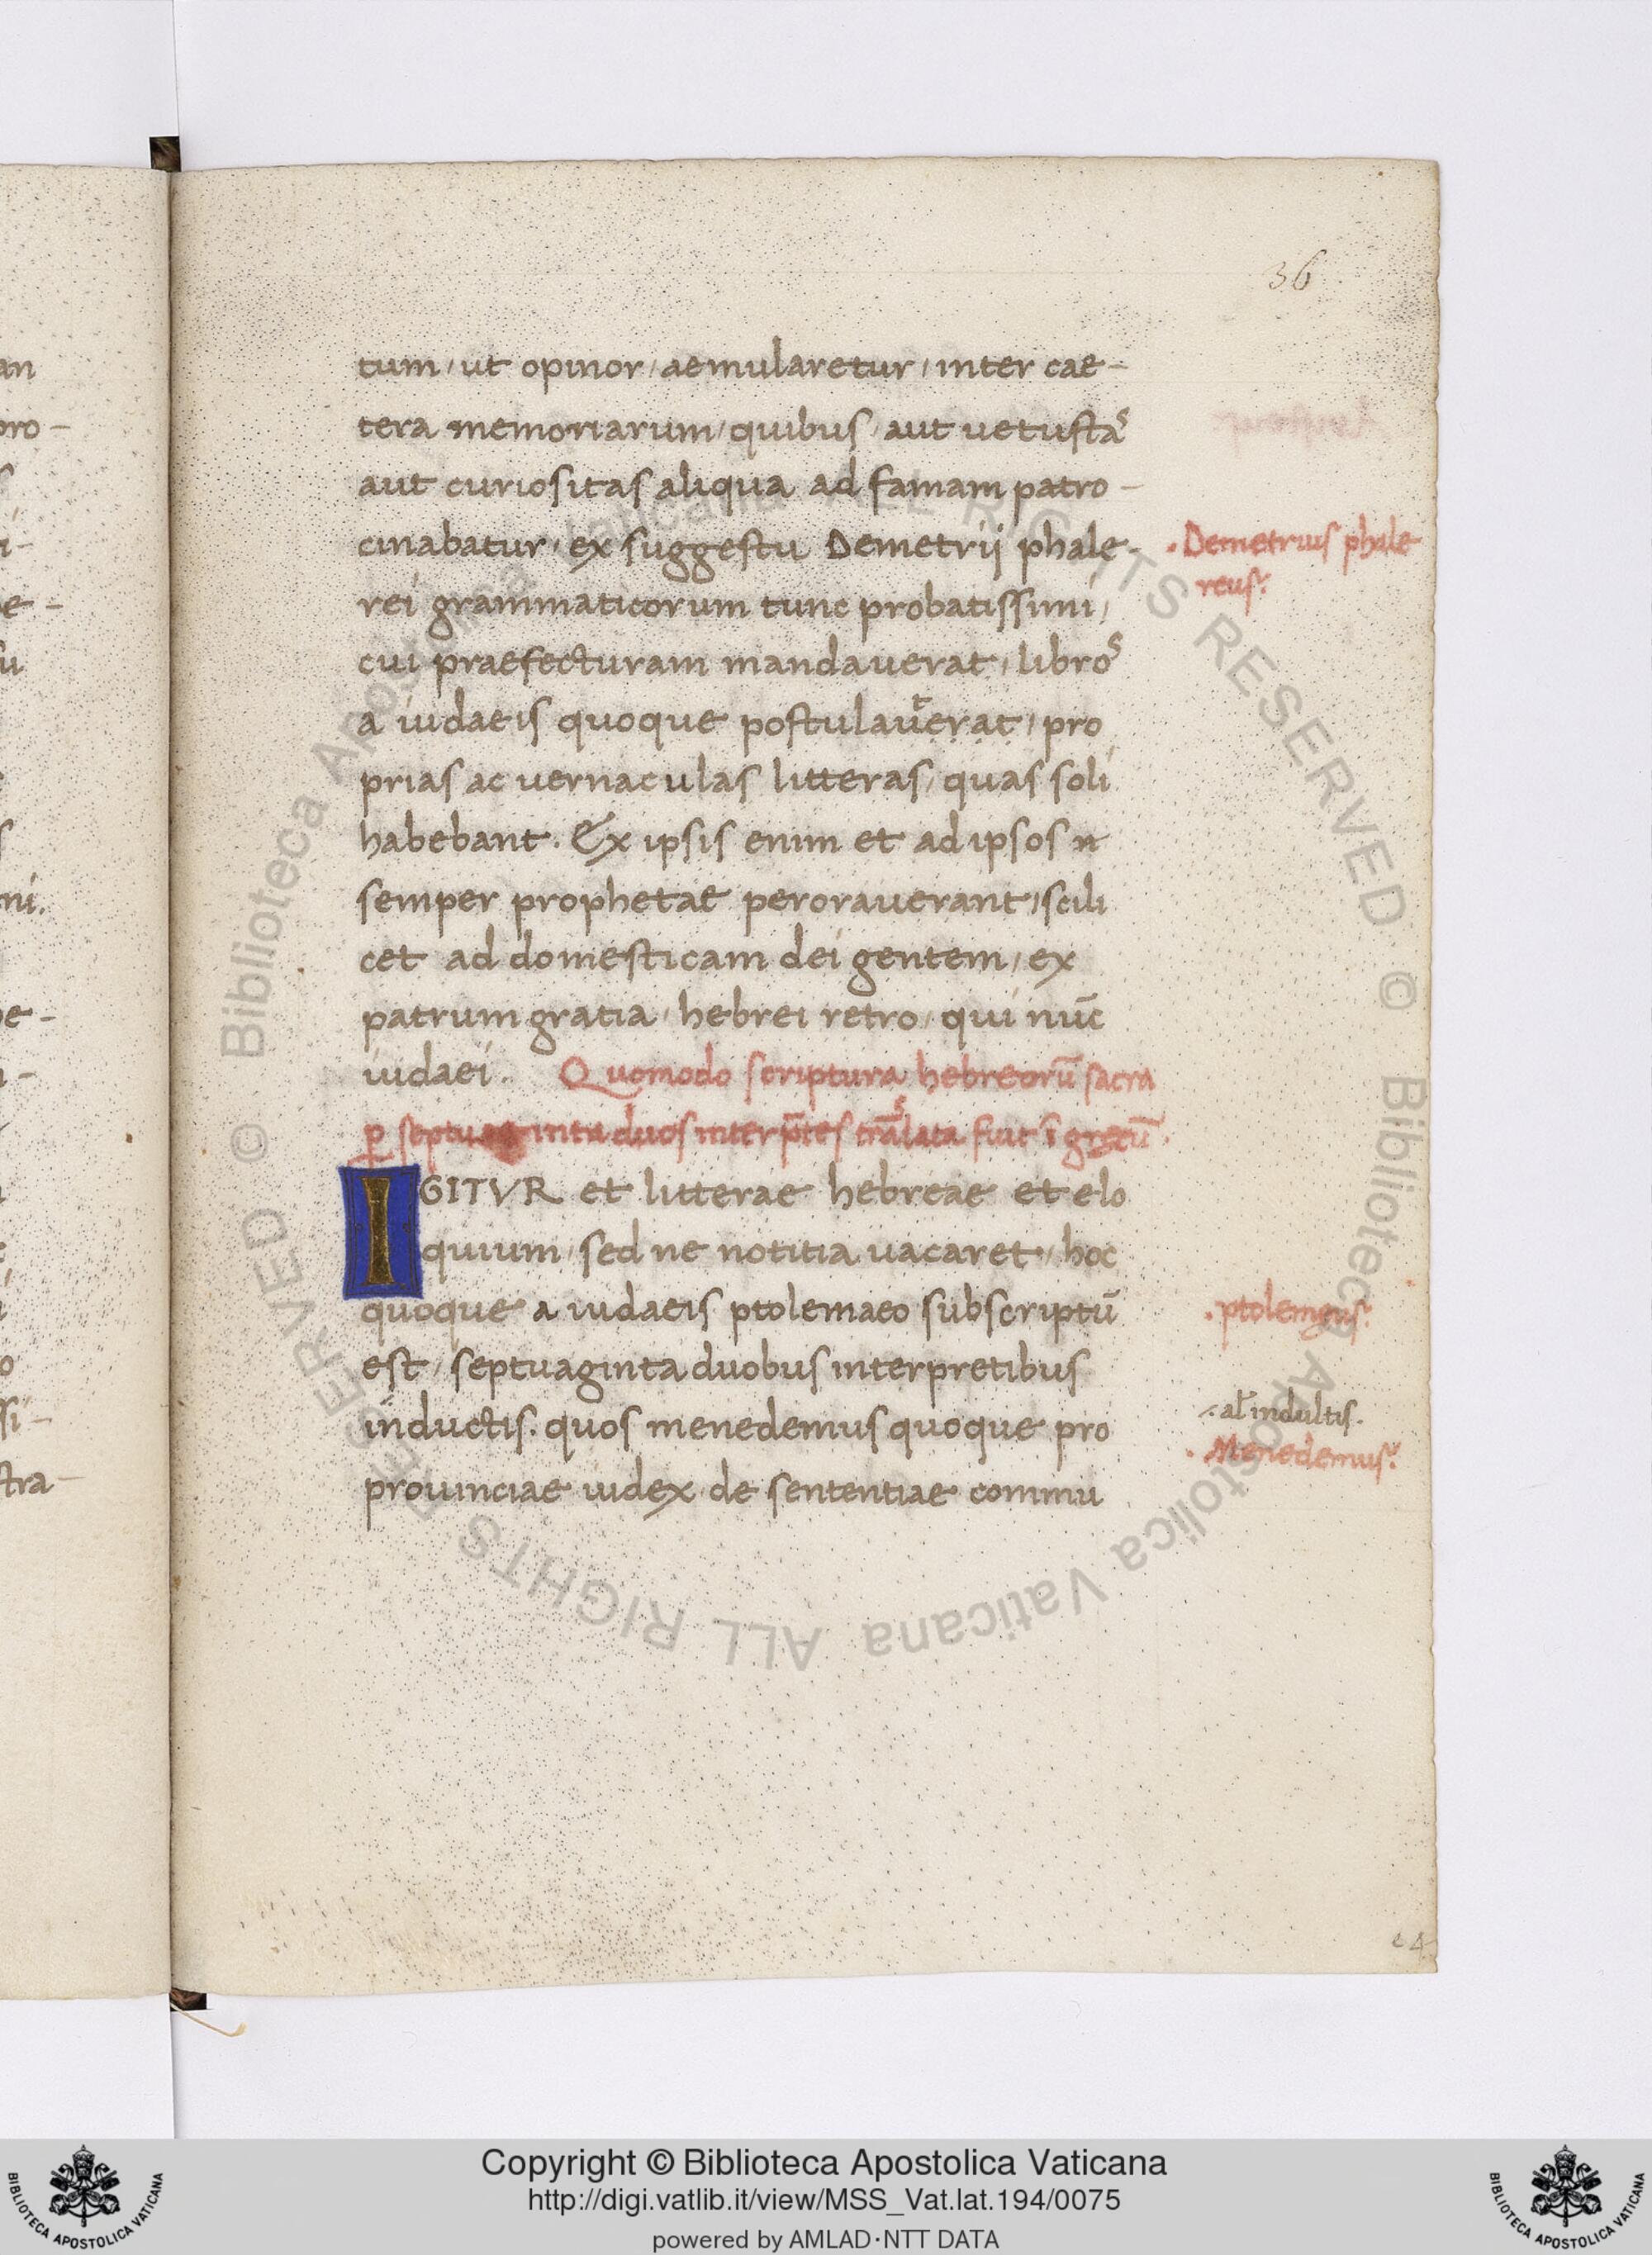 36
tum, ut opinor, aemularetur, inter cae-
tera memoriarum, quibus, aut uetustas
aut curiositas aliqua ad famam patro-
cinabatur, ex suggestu Demetrij phale-
rei grammaticorum tunc probatissimi,
cui praefecturam mandauerat, libros
a iudaeis quoque postulauerat, pro
prias ac vernaculas litteras, quas soli
habebant. Ex ipsis enim et ad ipsos
semper prophetae perorauerant, scili
cet ad domesticam dei gentem, ex
patrum gratia, hebrei retro, qui nūc
iudaei. Quomodo scriptura hebreorū sacra
ꝑ septuaginta duos interp̄tes trāslata fuit ī grecū.
IGITVR et litterae hebreae et elo
quium, sed ne notitia uacaret, hoc
quoque a iudaeis ptolemaeo subscriptū
est, septuaginta duobus interpretibus
inductis. quos menedemus quoque pro
prouinciae iudex de sententiae commu
.Demetrius phale
reus.
.ptolemeus.
.al' indultis.
.Menedemus.
an
pro-
e-
u
ni.
e-
o
si-
stra-
© Biblioteca Apostolica Vaticana ALL RIGHTS RESERVED © Biblioteca Apostolica Vaticana ALL RIGHTS RESERVED
Copyright © Biblioteca Apostolica Vaticana
http://digi.vatlib.it/view/MSS_Vat.lat.194/0075
powered by AMLAD·NTT DATA
BIBLIOTECA APOSTOLICA VATICANA
BIBLIOTECA APOSTOLICA VATICANA